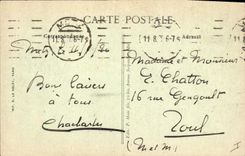 CARTE POSTALE
Correspondance
Adresse
METZ
11.8
Metz
Bons baisers
à tous
Madame et Monsieur
E. Chatton
16 rue Gengoult
Toul
(M et M)